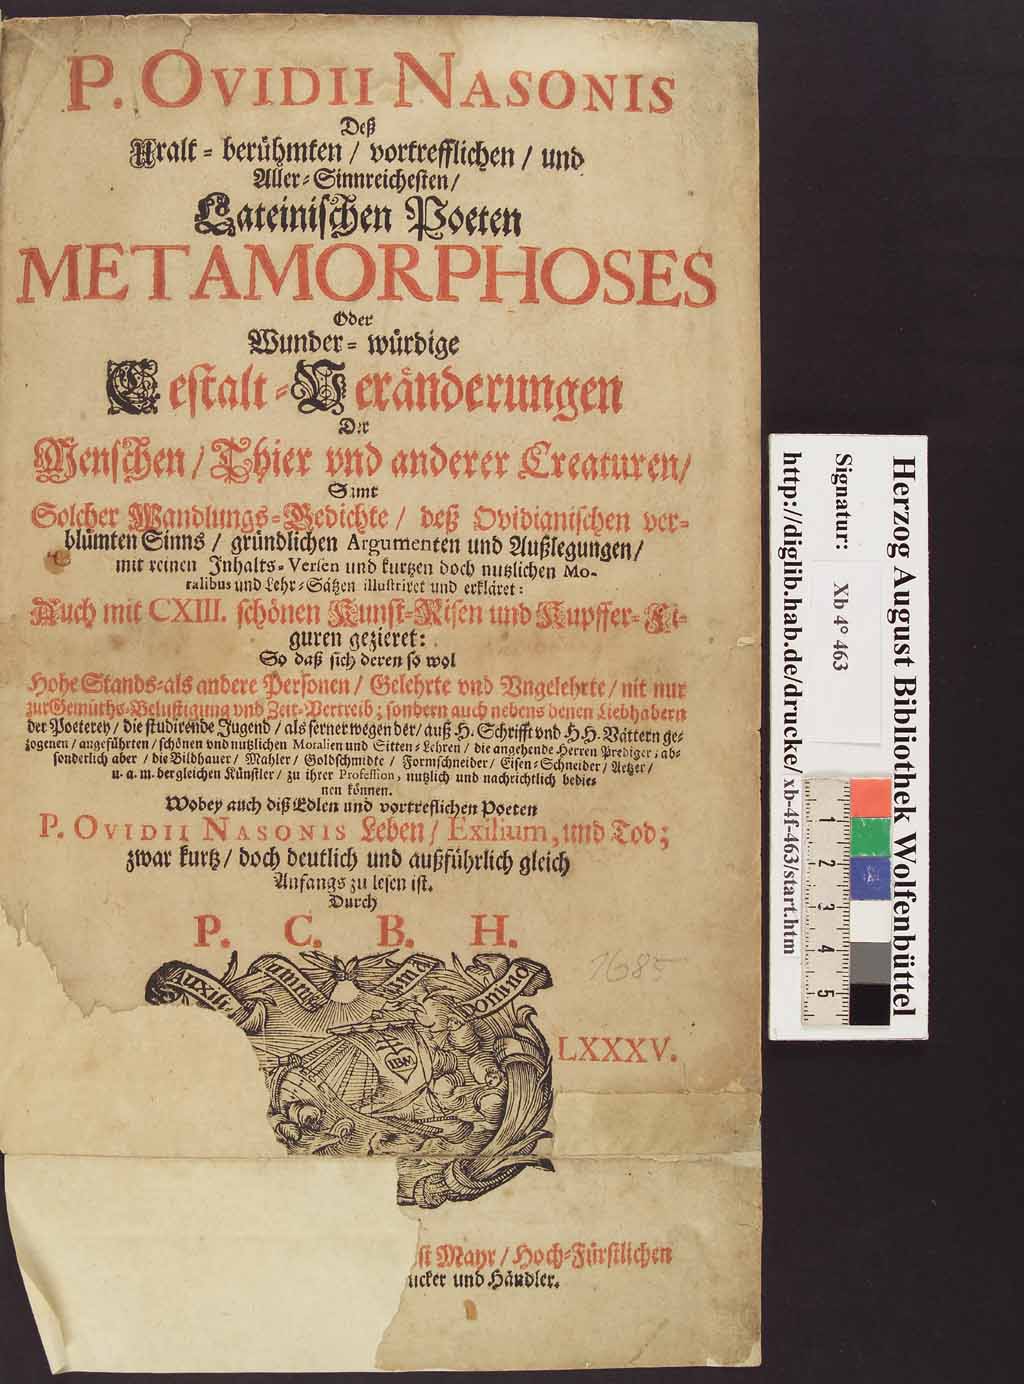 P. OVIDII NASONIS
Deß
Uralt-berühmten / vortrefflichen / und
Aller-Sinnreichesten /
Lateinischen Poeten
METAMORPHOSES
Oder
Wunder-würdige
Gestalt-Veränderungen
Der
Menschen / Thier vnd anderer Creaturen /
Samt
Solcher Wandlungs-Gedichte / deß Ovidianischen ver-
blümten Sinns / gründlichen Argumenten und Außlegungen /
mit reinen Inhalts-Versen und kurtzen doch nutzlichen Mo-
ralibus und Lehr-Sätzen illustriret und erkläret:
Auch mit CXIII. schönen Kunst-Risen und Kupffer-Fi-
guren gezieret:
So daß sich deren so wol
Hohe Stands- als andere Personen / Gelehrte vnd Vngelehrte / nit nur
zur Gemüths-Belustigung vnd Zeit-Vertreib; sondern auch nebens denen Liebhabern
der Poeterey / die studirende Jugend / als ferner wegen der / auß H. Schrifft vnd H.H. Vättern ge-
zogenen / angeführten / schönen vnd nutzlichen Moralien und Sitten-Lehren / die angehende Herren Prediger, ab-
sonderlich aber / die Bildhauer / Mahler / Goldschmidte / Formschneider / Eisen-Schneider / Aetzer /
u. a. m. dergleichen Künstler / zu ihrer Profession, nutzlich und nachrichtlich bedie-
nen können.
Wobey auch diß Edlen und vortreflichen Poeten
P. OVIDII NASONIS Leben / Exilium, und Tod;
zwar kurtz / doch deutlich und außführlich gleich
Anfangs zu lesen ist.
Durch
P. C. B. H.
1685
Domino
IBM
LXXXV.
st Mayr / Hoch-Fürstlichen
ucker und Händler.
Herzog August Bibliothek Wolfenbüttel
Signatur: Xb 4° 463
http://diglib.hab.de/drucke/xb-4f-463/start.htm
1 2 3 4 5